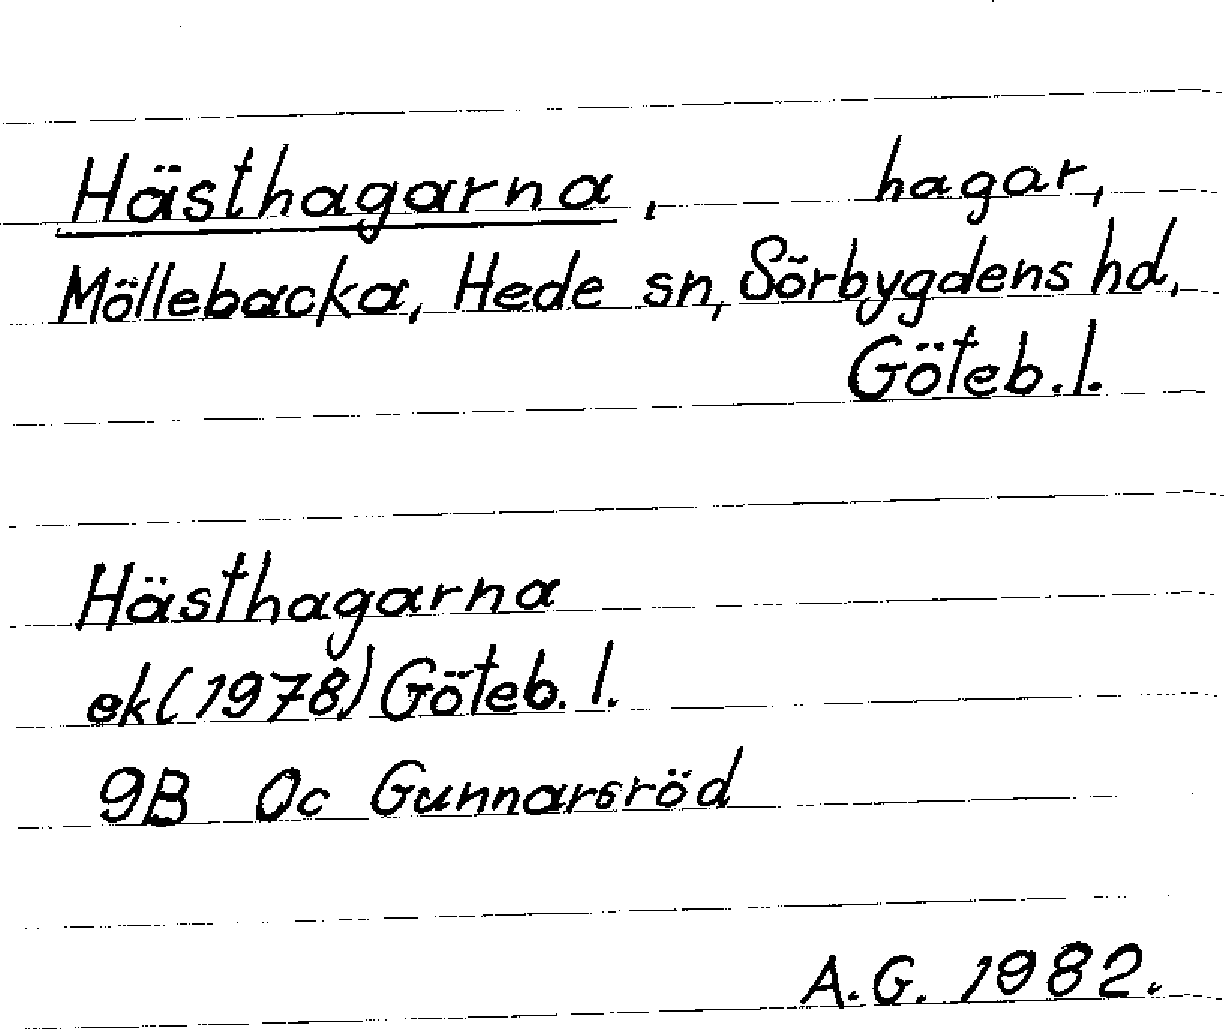 Hästhagarna, hagar,
Möllebacka, Hede sn, Sörbygdens hd,
Göteb. l.
Hästhagarna
ek (1978) Göteb. l.
9B 0c Gunnarsröd
A.G. 1982.